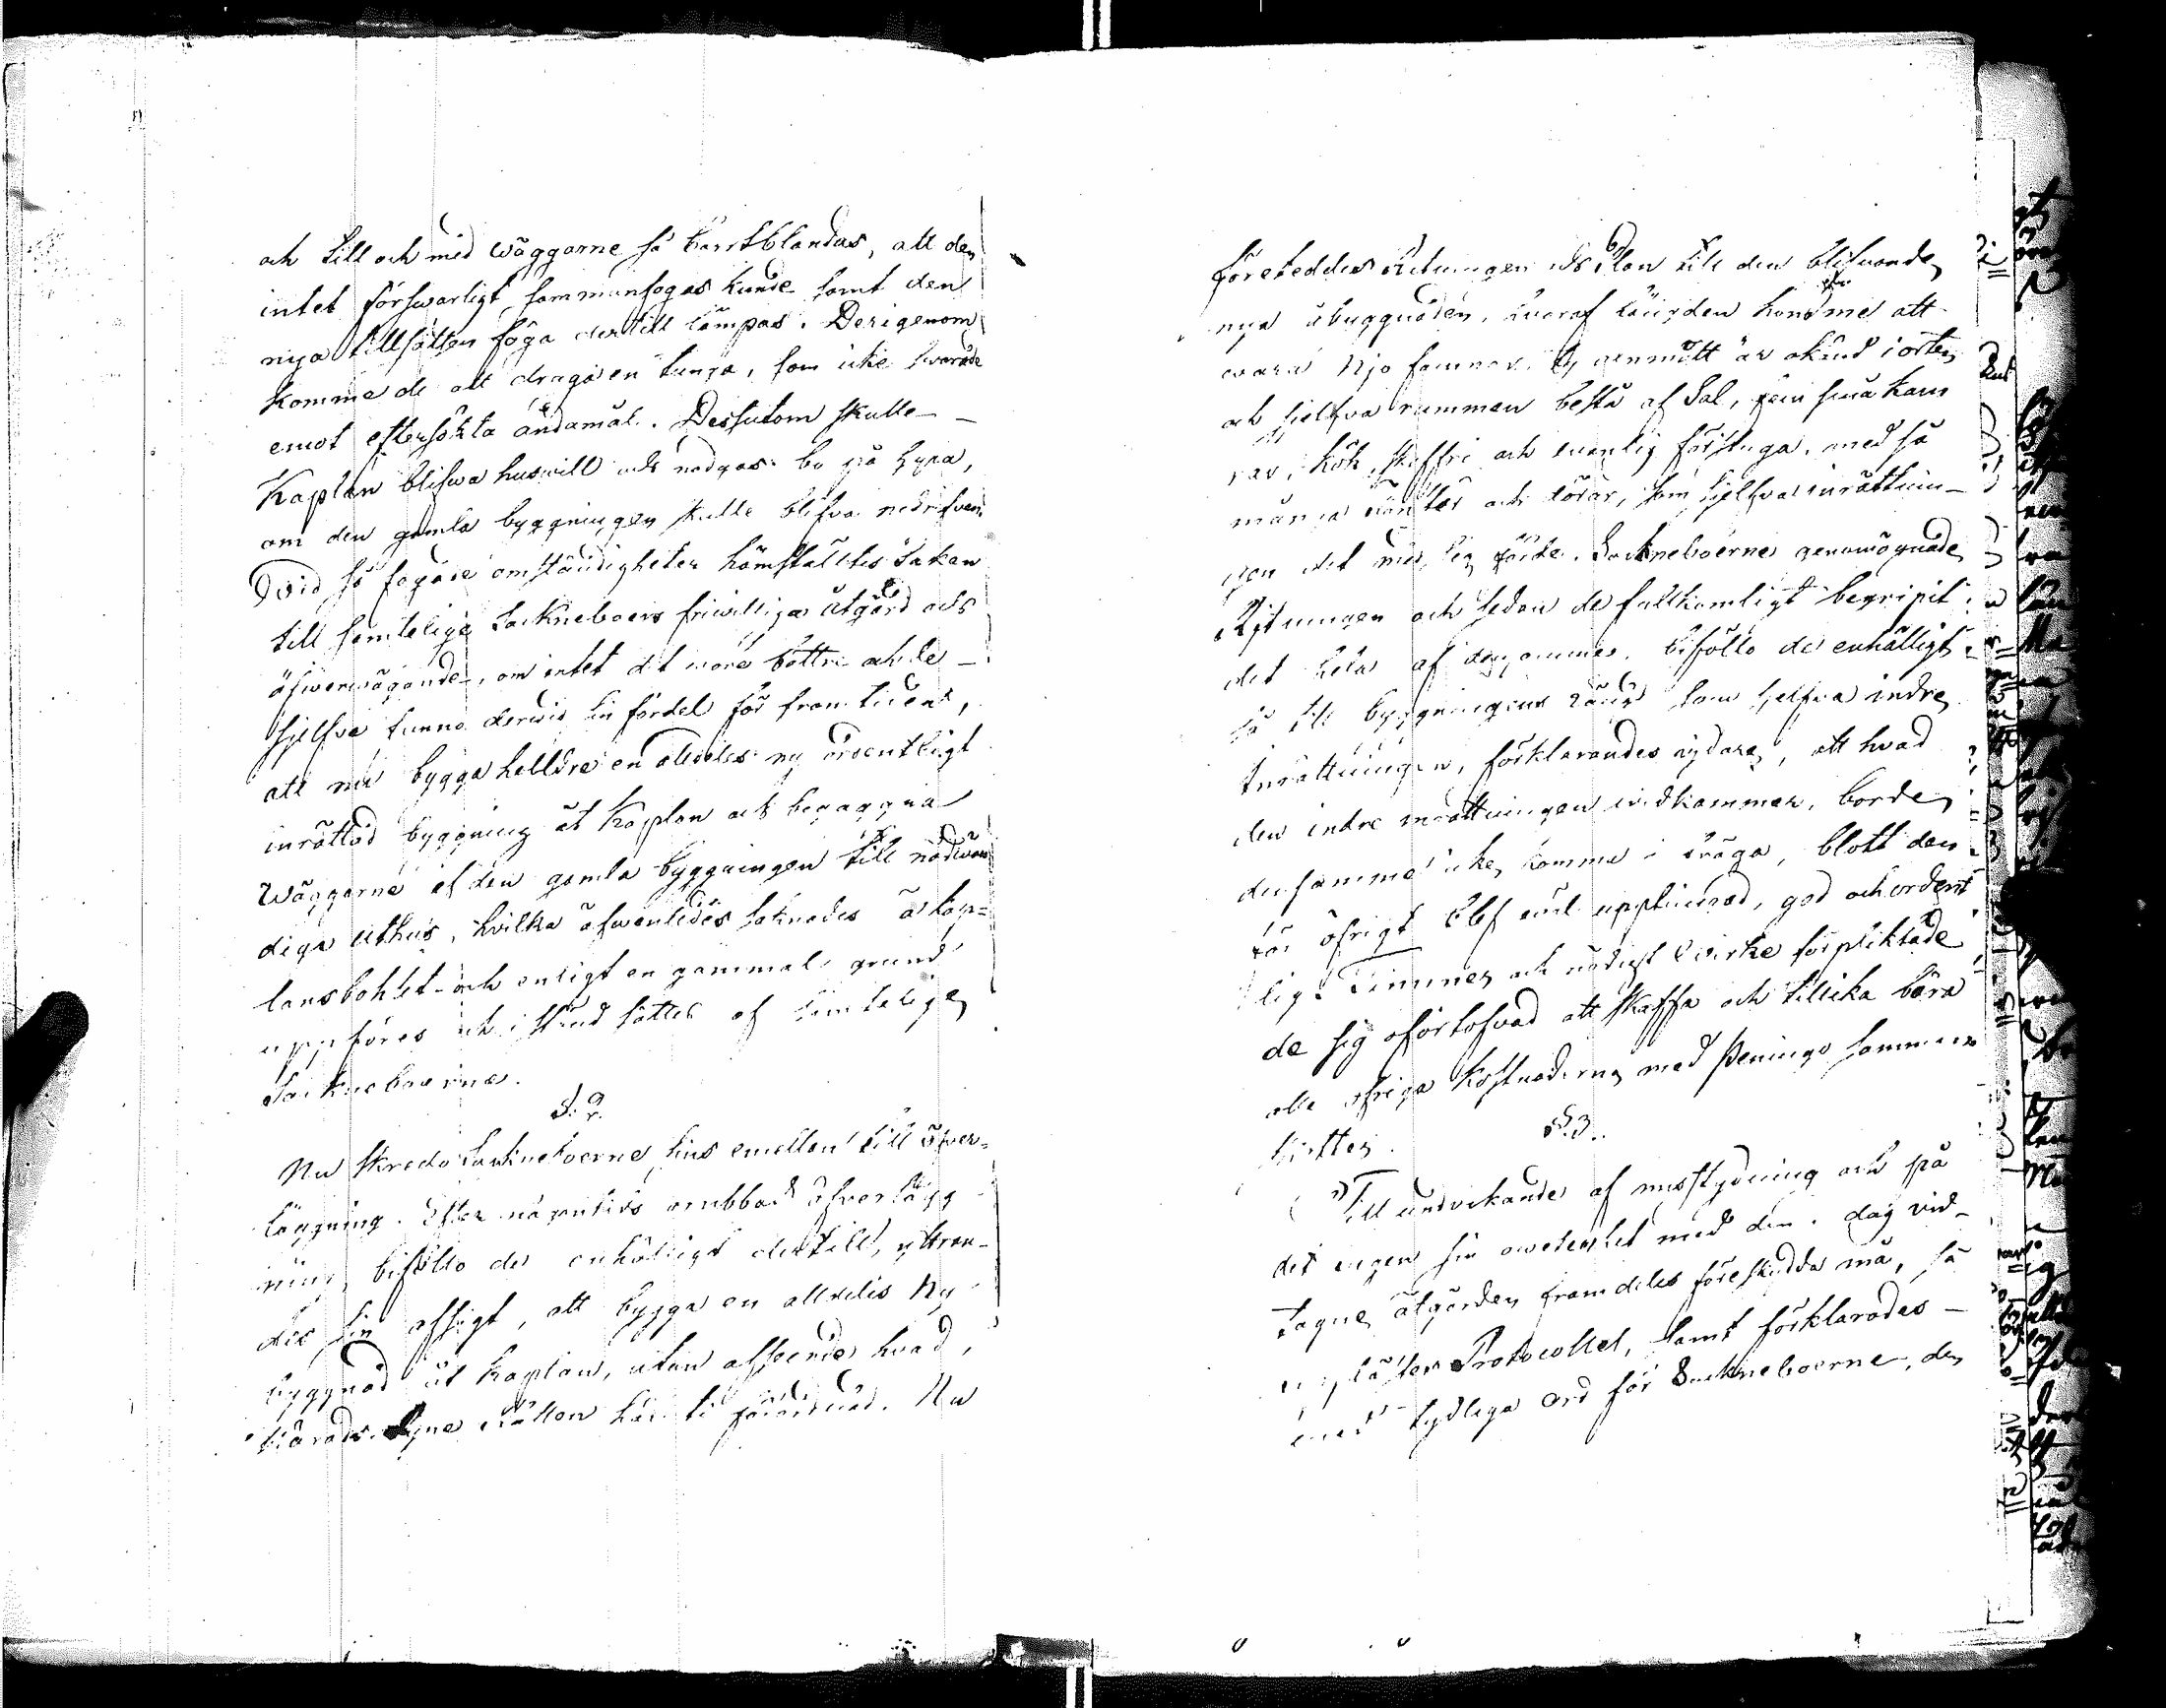 och till och med wäggarne så bortblandas, att den
intet förswarligt sammanfogas kunde samt den
nya tillsatsen föga dertill lämpas. Derigenom
komme de att draga en tunga, som icke swarade
emot eftersökta ändamål. Dessutom skulle
Kaplan blifwa huswill och nödgas bo på hyra,
om den gamla byggningen skulle blifva nedrifven.
Wid så fogade omständigheter hämstältes saken
till samtelige Sockneboers friwilliga åtgärd och
öfwerwägande, om intet det wore bättre och de
sjelfve funno derwid sin fördel för framtiden,
att nu bygga helldre en aldeles ny ordentligt
inrättad byggning åt Kaplan och begagna
Wäggarne af den gamla byggningen till nödwän
diga uthus, hvilka äfwenledes saknades å kap=
lansbohlet och enligt en gammal grund
uppföres och i stånd sättes af samtelige
Sockneboerne.
§. 2.
Nu skredo Sockneboerne sins emellan till öfver=
läggning. Efter någontids
bifollo de enhälligt dertill, yttran-
des sin afsigt, att bygga en alldeles ny
byggnad åt Kaplan, utan afseende hvad
Härads Syne Rätten här
Nu
företeddes Ritningen och Plan till den blifwande
nya åbyggnaden, hwaraf längden komme att
wara Njo famnar
är okänd i orten
och sjelfva rummen bestå af Sal, fem små kam
rar, kök, skafferi och wanlig förstuga, med så
många fönster och dörar, som sjelfva inrättnin-
gen det med sig förde. Sockneboerne genomögnade
Ritningen och sedan de fullkomligt begripit
det hela af densamma, biföllo de enhälligt
så till byggningens längd som sjelfva indre
Inrättningen, förklarandes nydare, att hvad
den indre inrättningen widkommer, borde
densamma icke komma i fråga, blott den
för öfrigt blef wäl upptimrad, god och ordent
lig. Timmer och nödigt wirke förpliktade
de sig oförtofvad att skaffa och tillika bära
alla öfriga kostnaderna med Peninge samman
skotter.
§. 3.
Till undvikande af misstydning och på
det ingen sin owetenhet med den i dag vid-
tagne åtgärden framdeles föreskydda må, så
upplästes Protocollet, samt förklarades
med tydliga ord för Sockneboerne, den